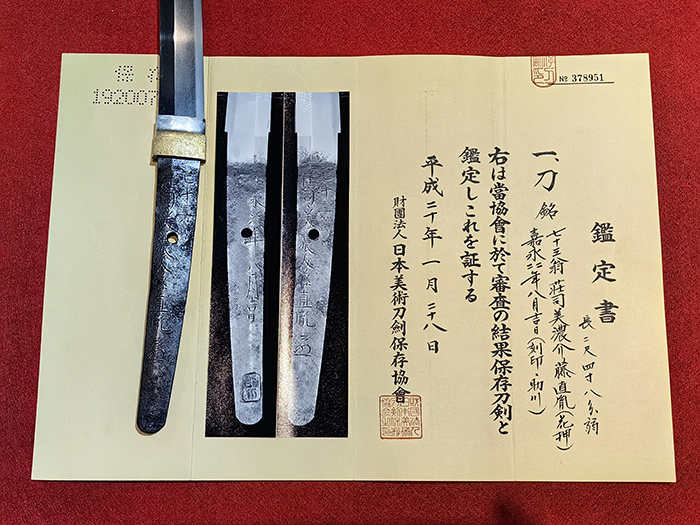 № 378951
鑑定書
一、刀 銘 七十三翁 荘司美濃介藤直胤(花押)
嘉永二年八月吉日(刻印・助川)
長二尺四寸八分弱
右は當協會に於て審査の結果保存刀剣と
鑑定しこれを証する
平成二十年一月二十八日
財團法人 日本美術刀劍保存協會
保
192007